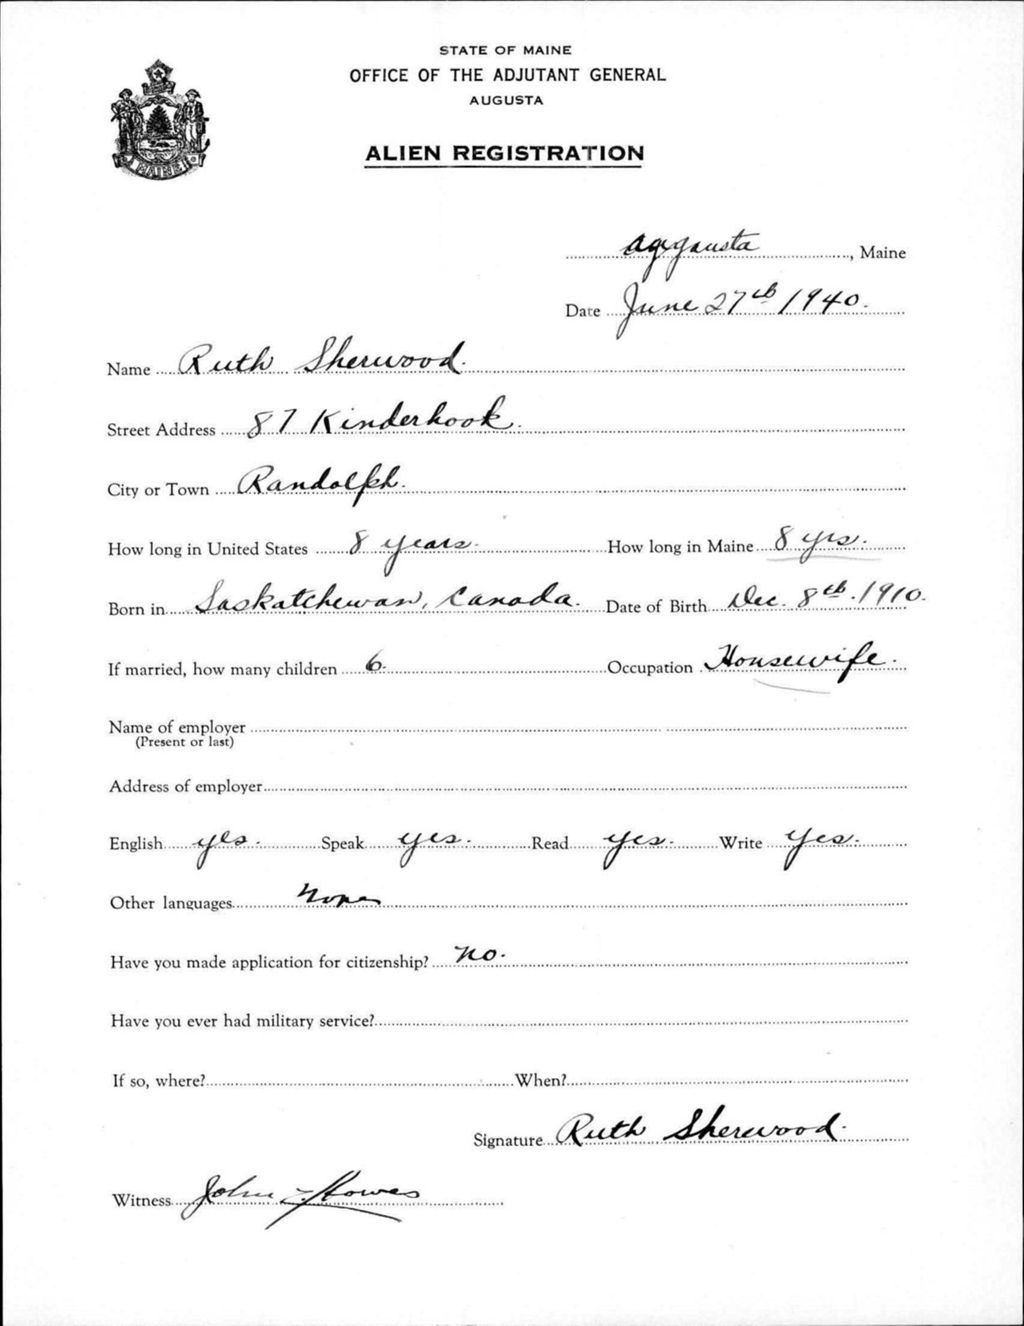 STATE OF MAINE
OFFICE OF THE ADJUTANT GENERAL
AUGUSTA
ALIEN REGISTRATION
MAINE
Auggusta, Maine
Date June 27th 1940.
Name Ruth Sherwood.
Street Address 87 Kinderhook.
City or Town Randolph.
How long in United States 8 years. How long in Maine 8 yrs.
Born in Saskatchewan, Canada. Date of Birth Dec. 8th. 1910.
If married, how many children 6. Occupation Housewife.
Name of employer
(Present or last)
Address of employer
English yes. Speak yes. Read yes. Write yes.
Other languages None
Have you made application for citizenship? no.
Have you ever had military service?
If so, where? When?
Signature Ruth Sherwood.
Witness John Howes